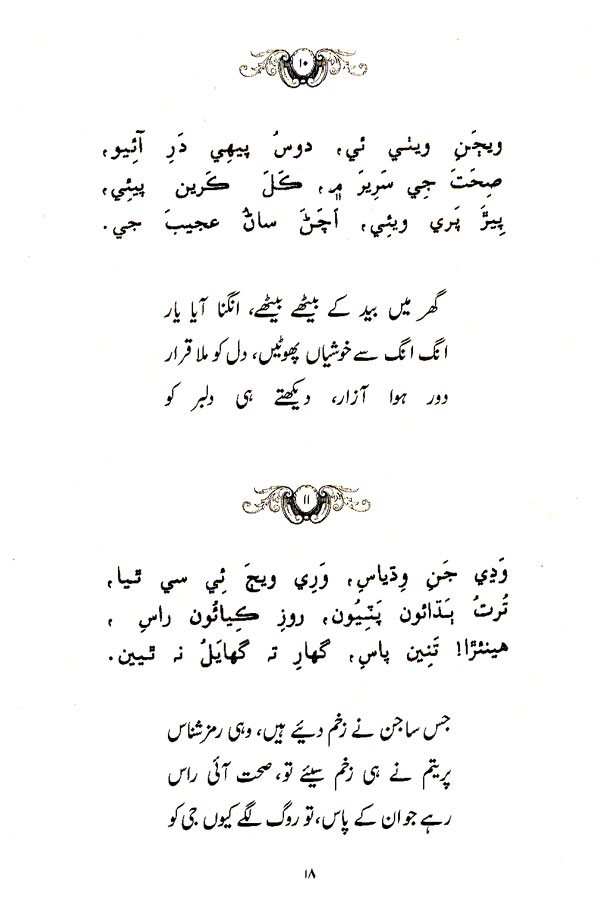 ۱۰
ويڄَنِ ويٺي ئي، دوسُ پيهِي دَرِ آئِيو،
صِحَتَ جِي سَرِيرَ ۾، ڪَلَ ڪَرين پيئِي،
پِيڙَ پَري ويئِي، اَچَڻَ سانُ عجيبَ جي.
گھر میں بید کے بیٹھے بیٹھے، انگنا آیا یار
انگ انگ سے خوشیاں پھوٹیں، دل کو ملا قرار
دور ہوا آزار، دیکھتے ہی دلبر کو
۱۱
وَڍِي جَنِ وِڌِياسِ، وَرِي ويڄَ ئِي سي ٿيا،
تُرتُ ٻَڌائون پَٽِيُون، روزِ ڪِيائُون راسِ ،
هينئڙا! تَنِين پاسِ، گهارِ تہ گهايَلُ نہ ٿيين.
جس ساجن نے زخم دئیے ہیں، وہی رمز شناس
پریتم نے ہی زخم سیئے تو، صحت آئی راس
رہے جو ان کے پاس، تو روگ لگے کیوں جی کو
۱۸